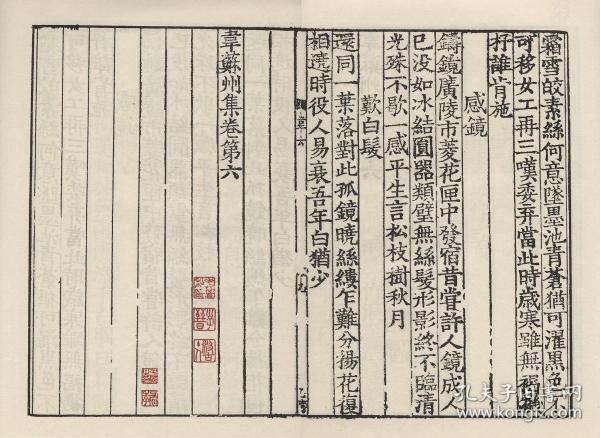 霜雪皎素絲何意墜墨池青蒼猶可濯黑色不
可移女工再三嘆委弃當此時歲寒雖無褐機
杼誰肯施
感鏡
鑄鏡廣陵市菱花匣中發宿昔嘗許人鏡成人
已没如冰結圓器類璧無絲髮形影終不臨清
光殊不歇一感平生言松枝樹秋月
歎白髮
還同一葉落對此孤鏡曉絲縷乍難分揚花復
相遶時役人易衰吾年白猶少
韋六
九
韋蘇州集卷第六
孔夫子旧书网
www.kongfz.com